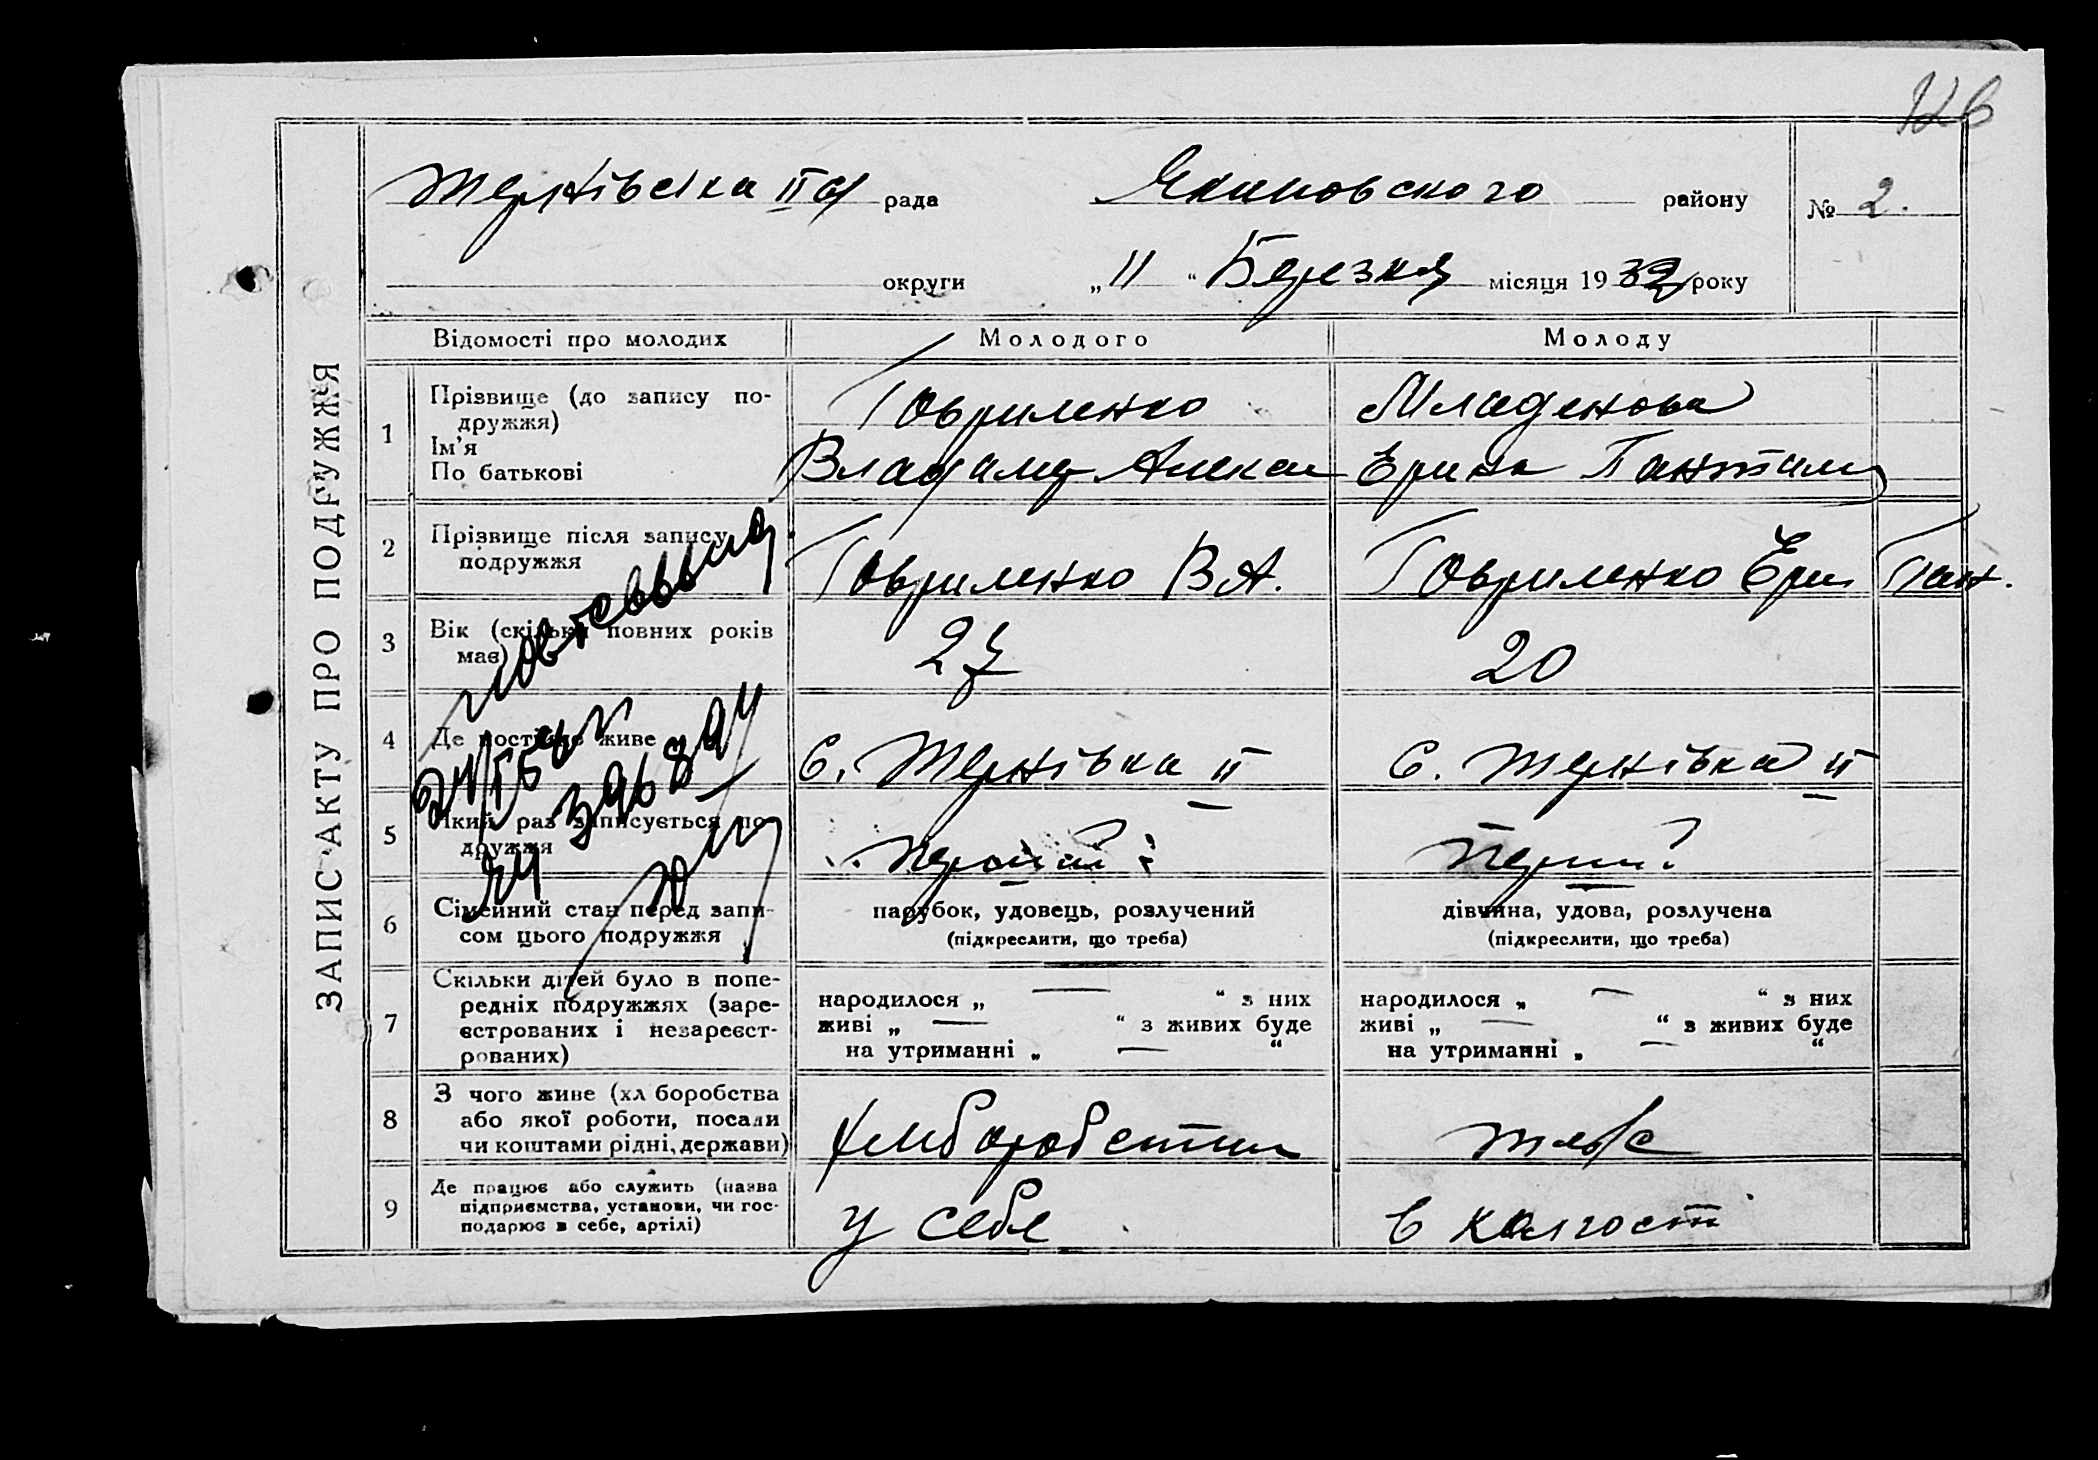 126
Тернівська II а рада Якимовского району № 2.
округи „ 11 “ Березня місяця 1932 року
ЗАПИС АКТУ ПРО ПОДРУЖЖЯ
Відомості про молодих Молодого Молоду
1 Прізвище (до запису по-
дружжя)
Ім'я
По батькові
Говриленко
Владимер Алекса
Младенова
Ерина Пантелей
2 Прізвище після запису
подружжя
Говриленко В А.
Говриленко Ери Пан.
3 Вік (скільки повних років
має)
27
20
4 Де постійно живе
С. Тернівка II
С. Тернівка II
5 Який раз записується по-
дружжя
Перший
Перши
6 Сімейний стан перед запи-
сом цього подружжя
парубок, удовець, розлучений
(підкреслити, що треба)
дівчина, удова, розлучена
(підкреслити, що треба)
7 Скільки дітей було в попе-
редніх подружжях (заре-
єстрованих і незареєст-
рованих)
народилося „ — “ з них
живі „ — “ з живих буде
на утриманні „ — “
народилося „ — “ з них
живі „ — “ з живих буде
на утриманні „ — “
8 З чого живе (хл боробства
або якої роботи, посади
чи коштами рідні, держави)
хлиборобством
тяж
9 Де працює або служить (назва
підприємства, установи, чи гос-
подарює в себе, артілі)
у себе
в колгості